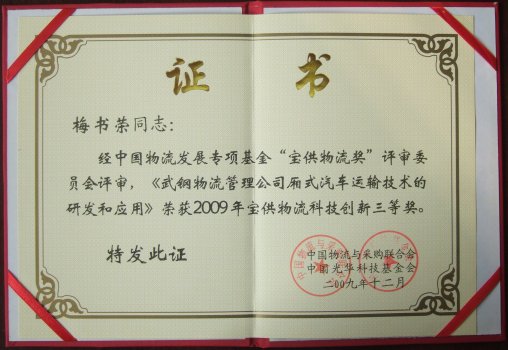 证 书
梅书荣同志：
经中国物流发展专项基金“宝供物流奖”评审委
员会评审，《武钢物流管理公司厢式汽车运输技术的
研发和应用》荣获2009年宝供物流科技创新三等奖。
特发此证
中国物流与采购联合会
中国光华科技基金会
二00九年十二月